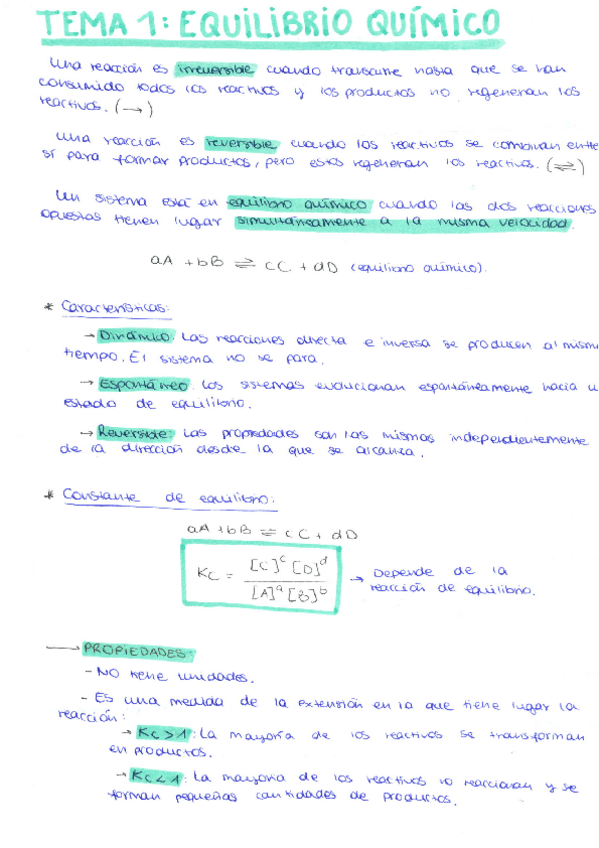 TEMA 1: EQUILIBRIO QUÍMICO
Una reacción es irreversible cuando transcurre hasta que se han
consumido todos los reactivos y los productos no regeneran los
reactivos. (→)
Una reacción es reversible cuando los reactivos se combinan entre
sí para formar productos, pero estos regeneran los reactivos. (⇌)
Un sistema está en equilibrio químico cuando las dos reacciones
opuestas tienen lugar simultáneamente a la misma velocidad.
aA + bB ⇌ cC + dD (equilibrio químico).
* Características:
→ Dinámico: Las reacciones directa e inversa se producen al mismo
tiempo. El sistema no se para.
→ Espontáneo: Los sistemas evolucionan espontáneamente hacia u
estado de equilibrio.
→ Reversible: Las propiedades son las mismas independientemente
de la dirección desde la que se alcanza.
* Constante de equilibrio:
aA + bB ⇌ cC + dD
Kc = [C]^c [D]^d / [A]^a [B]^b → Depende de la
reacción de equilibrio.
→ PROPIEDADES:
- NO tiene unidades.
- Es una medida de la extensión en la que tiene lugar la
reacción:
→ Kc > 1: La mayoría de los reactivos se transforman
en productos.
→ Kc < 1: La mayoría de los reactivos no reaccionan y se
forman pequeñas cantidades de productos.